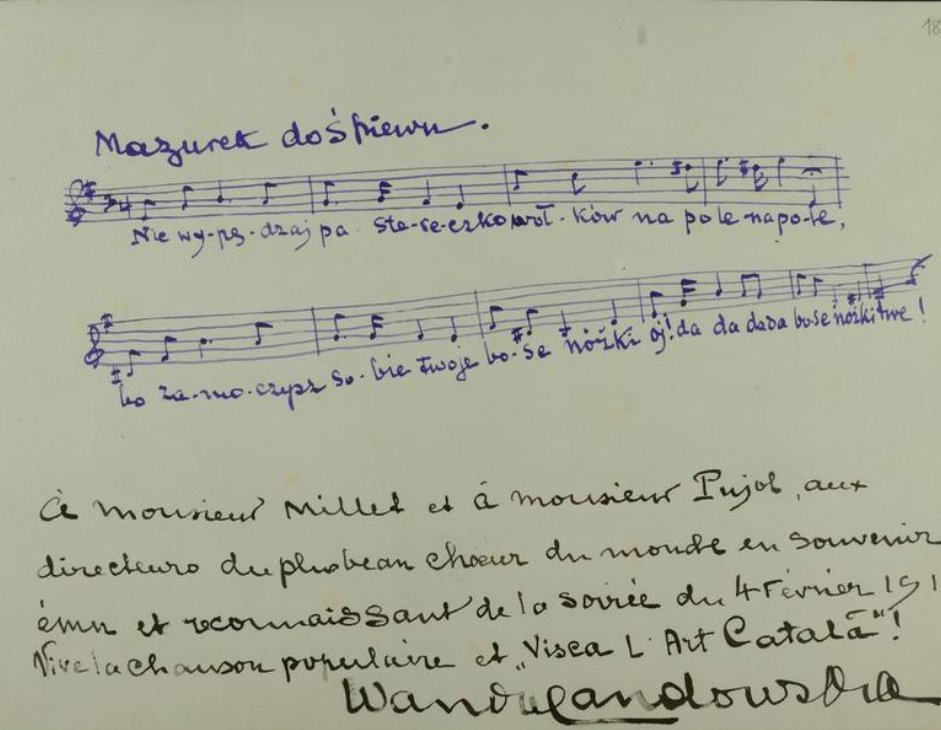 18
Mazurek do śpiewu.
Nie wy-pę-dzaj pa ste-re-czko woł-ków na po le na po-le,
bo za-mo-czysz so-bie twoje bo-se nóżki oj! da da dada bose nóżki twe!
À monsieur Millet et à monsieur Pujol, aux
directeurs du plus beau chœur du monde en souvenir
ému et reconnaissant de la soirée du 4 Février 191
Vive la chanson populaire et „Visca L'Art Català"!
Wanda Landowska